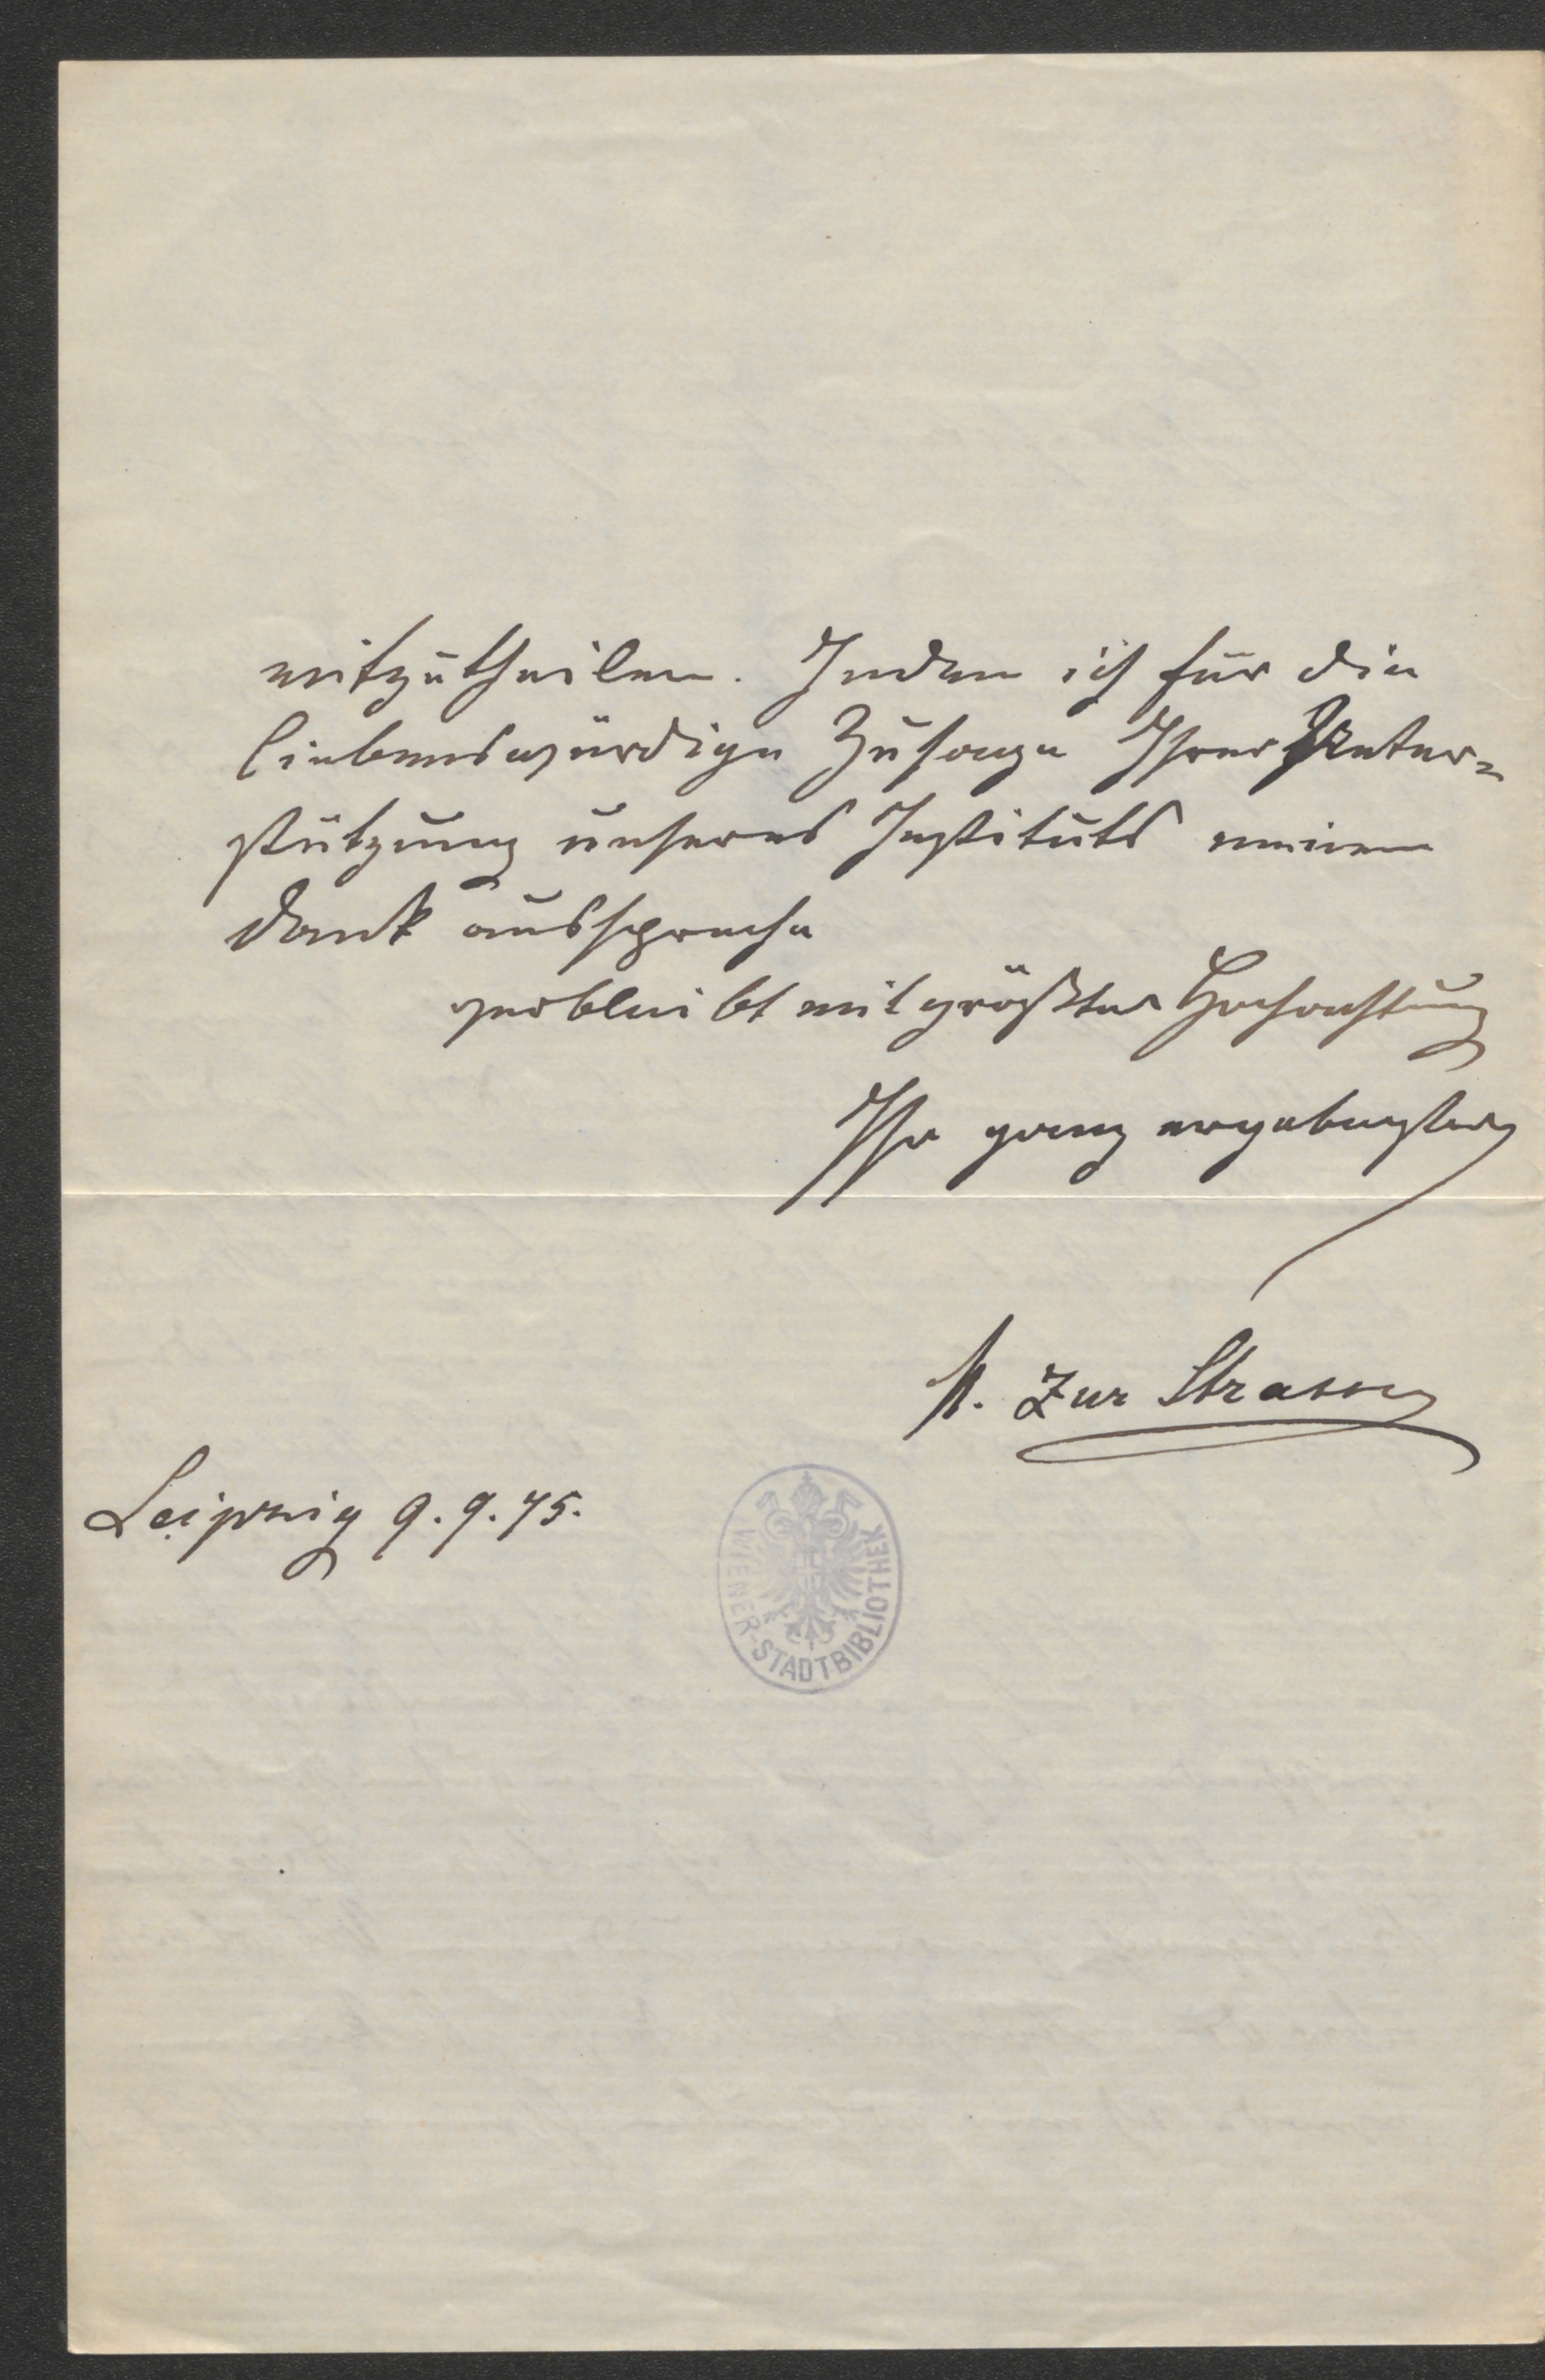 mitzutheilen. Indem ich für die
liebenswürdige Zusage Ihrer Unter=
stützung unseres Instituts meinen
Dank ausspreche
verbleibt mit größter Hochachtung
Ihr ganz ergebenster
M. zur Strassen
Leipzig 9.9.75.
WIENER-STADTBIBLIOTHEK